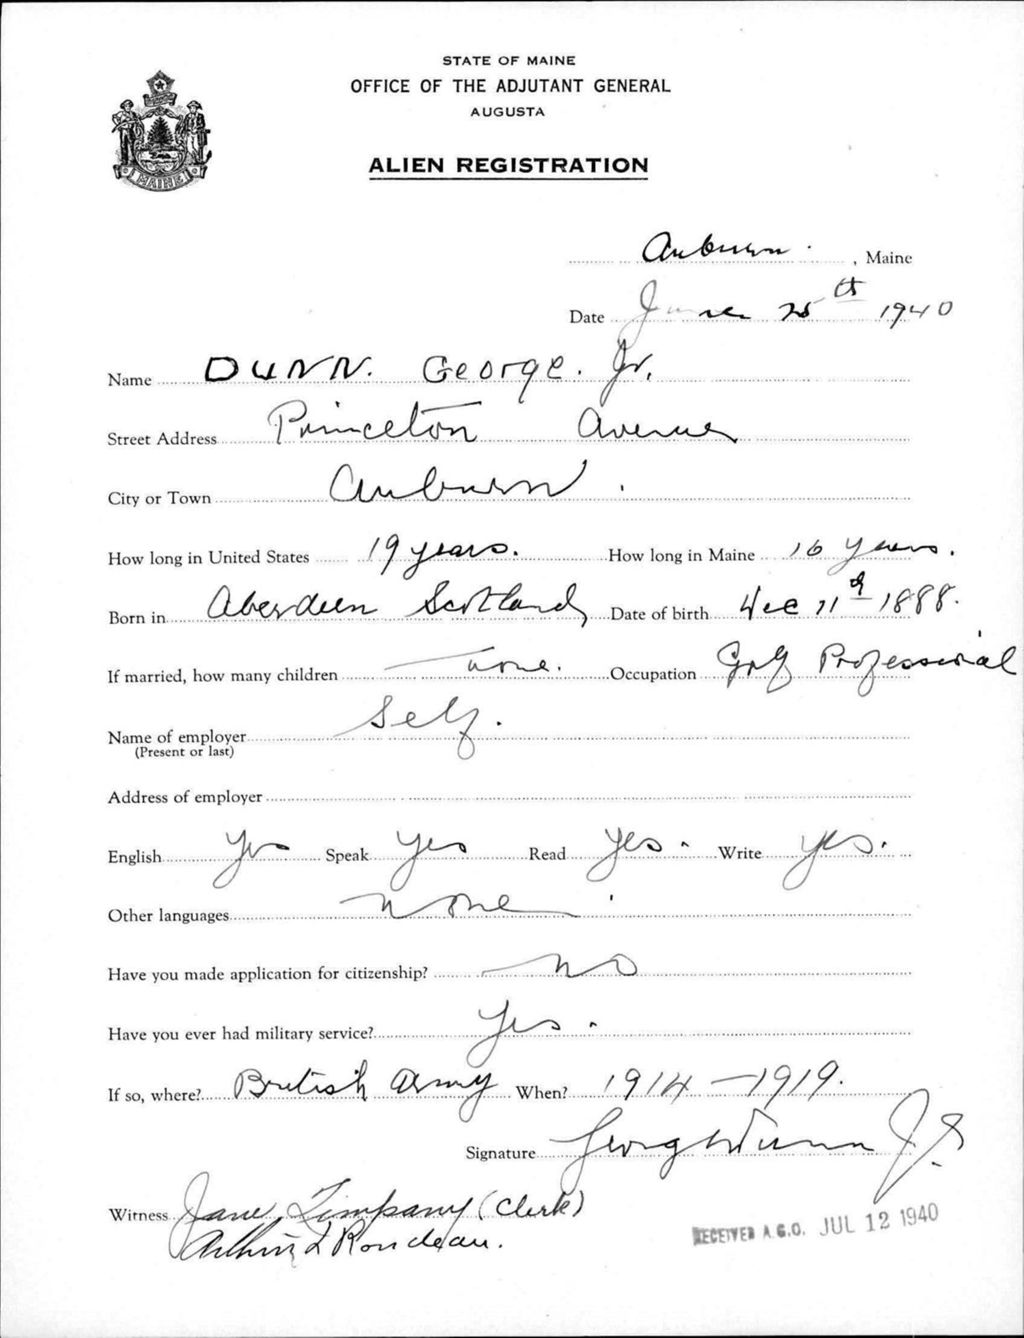 STATE OF MAINE
OFFICE OF THE ADJUTANT GENERAL
AUGUSTA
ALIEN REGISTRATION
MAINE
Auburn . , Maine
Date June 25th 1940
Name DUNN. George. Jr.
Street Address Princeton Avenue
City or Town Auburn .
How long in United States 19 years. How long in Maine 16 years.
Born in Aberdeen Scotland Date of birth Dec 11th 1888.
If married, how many children none. Occupation Golf Professional
Name of employer Self.
(Present or last)
Address of employer
English Yes Speak Yes Read Yes. Write yes.
Other languages None.
Have you made application for citizenship? No
Have you ever had military service? Yes.
If so, where? British Army When? 1914-1919.
Signature George Dunn Jr.
Witness Jane Timpany (Clerk)
Arthur L Rondeau.
RECEIVED A.G.O. JUL 12 1940